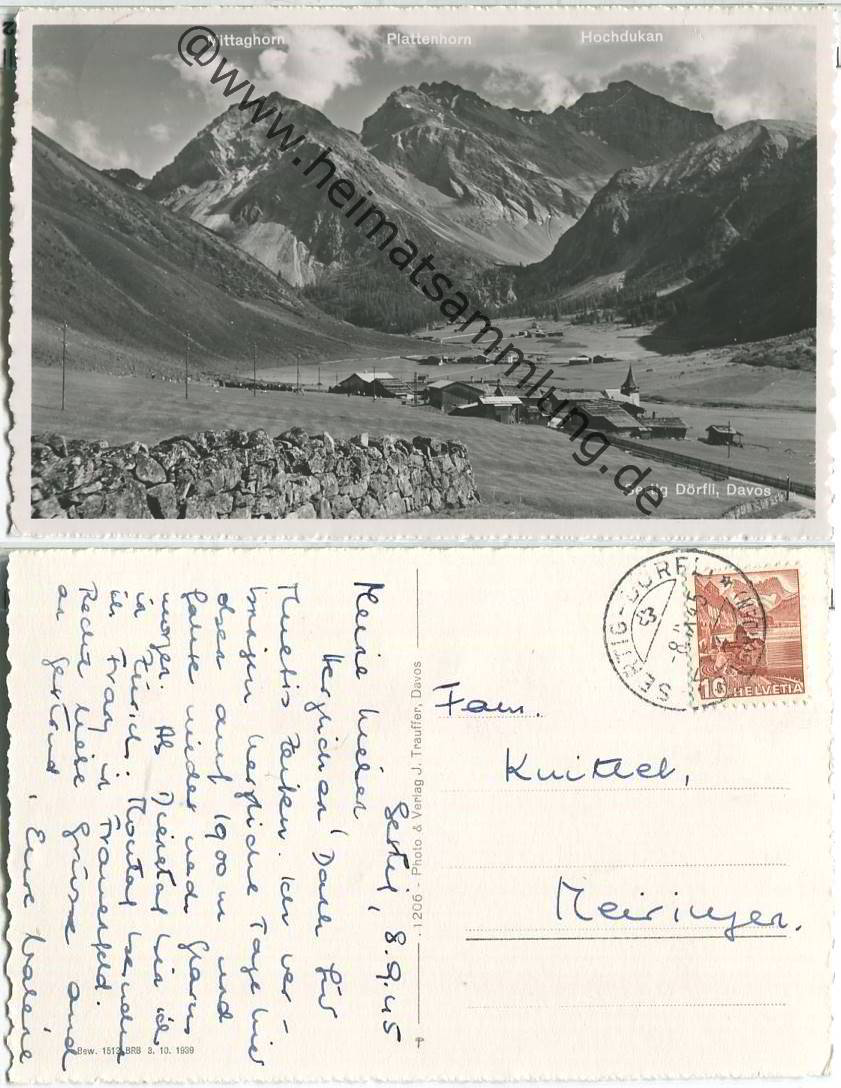 Mittaghorn Plattenhorn Hochdukan
@www.heimatsammlung.de
Sertig Dörfli, Davos
Sertig, 8.9.45
Meine Lieben,
Herzlichen Dank für
Zeilen. Ich ver-
bringe herzliche Tage hier
oben auf 1900 m und
fahre wieder nach Glarus
morgen. Ab Dienstag bin ich
in Zürich. Montag besuche
ich Franz in Frauenfeld.
Recht liebe Grüsse auch
an Gertrud, Eure Valérie
1206 - Photo & Verlag J. Trauffer, Davos
Bew. 1512 BRB 3. 10. 1939
SERTIG-DÖRFLI
10 HELVETIA
Fam.
Knittel,
Meiringen.